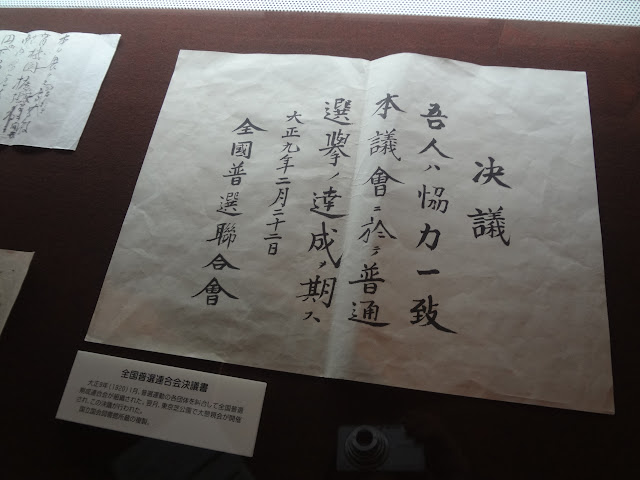 決議
吾人ハ恊力一致
本議會ニ於テ普通
選擧ノ達成ヲ期ス
大正九年二月二十二日
全國普選聯合會
全国普選連合会決議書
大正9年(1920)1月、普選運動の各団体を糾合して全国普選
期成連合会が組織された。翌月、東京芝公園で大懇親会が開催
され、この決議が行われた。
国立国会図書館所蔵の複製。